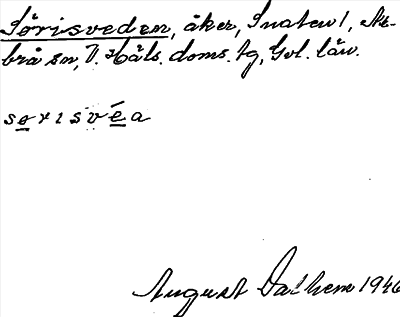 Sörisveden, åker, Snaten 1, Al-
brå sn, V. Häls. doms. tg, Gvl. län.
sörisvéa
August Dalhem 1946